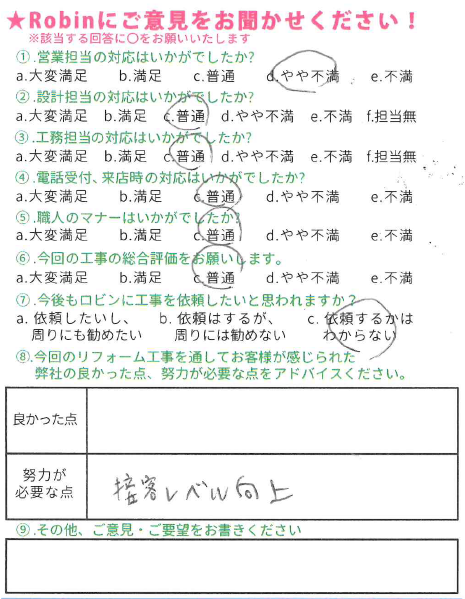 ★Robinにご意見をお聞かせください！
※該当する回答に〇をお願いいたします
①.営業担当の対応はいかがでしたか?
a.大変満足 b.満足 c.普通 d.やや不満 e.不満
②.設計担当の対応はいかがでしたか?
a.大変満足 b.満足 c.普通 d.やや不満 e.不満 f.担当無
③.工務担当の対応はいかがでしたか?
a.大変満足 b.満足 c.普通 d.やや不満 e.不満 f.担当無
④.電話受付、来店時の対応はいかがでしたか?
a.大変満足 b.満足 c.普通 d.やや不満 e.不満
⑤.職人のマナーはいかがでしたか?
a.大変満足 b.満足 c.普通 d.やや不満 e.不満
⑥.今回の工事の総合評価をお願いします。
a.大変満足 b.満足 c.普通 d.やや不満 e.不満
⑦.今後もロビンに工事を依頼したいと思われますか？
a. 依頼したいし、 b. 依頼はするが、 c. 依頼するかは
周りにも勧めたい 周りには勧めない わからない
⑧.今回のリフォーム工事を通してお客様が感じられた
弊社の良かった点、努力が必要な点をアドバイスください。
良かった点
努力が
必要な点
接客レベル向上
⑨.その他、ご意見・ご要望をお書きください